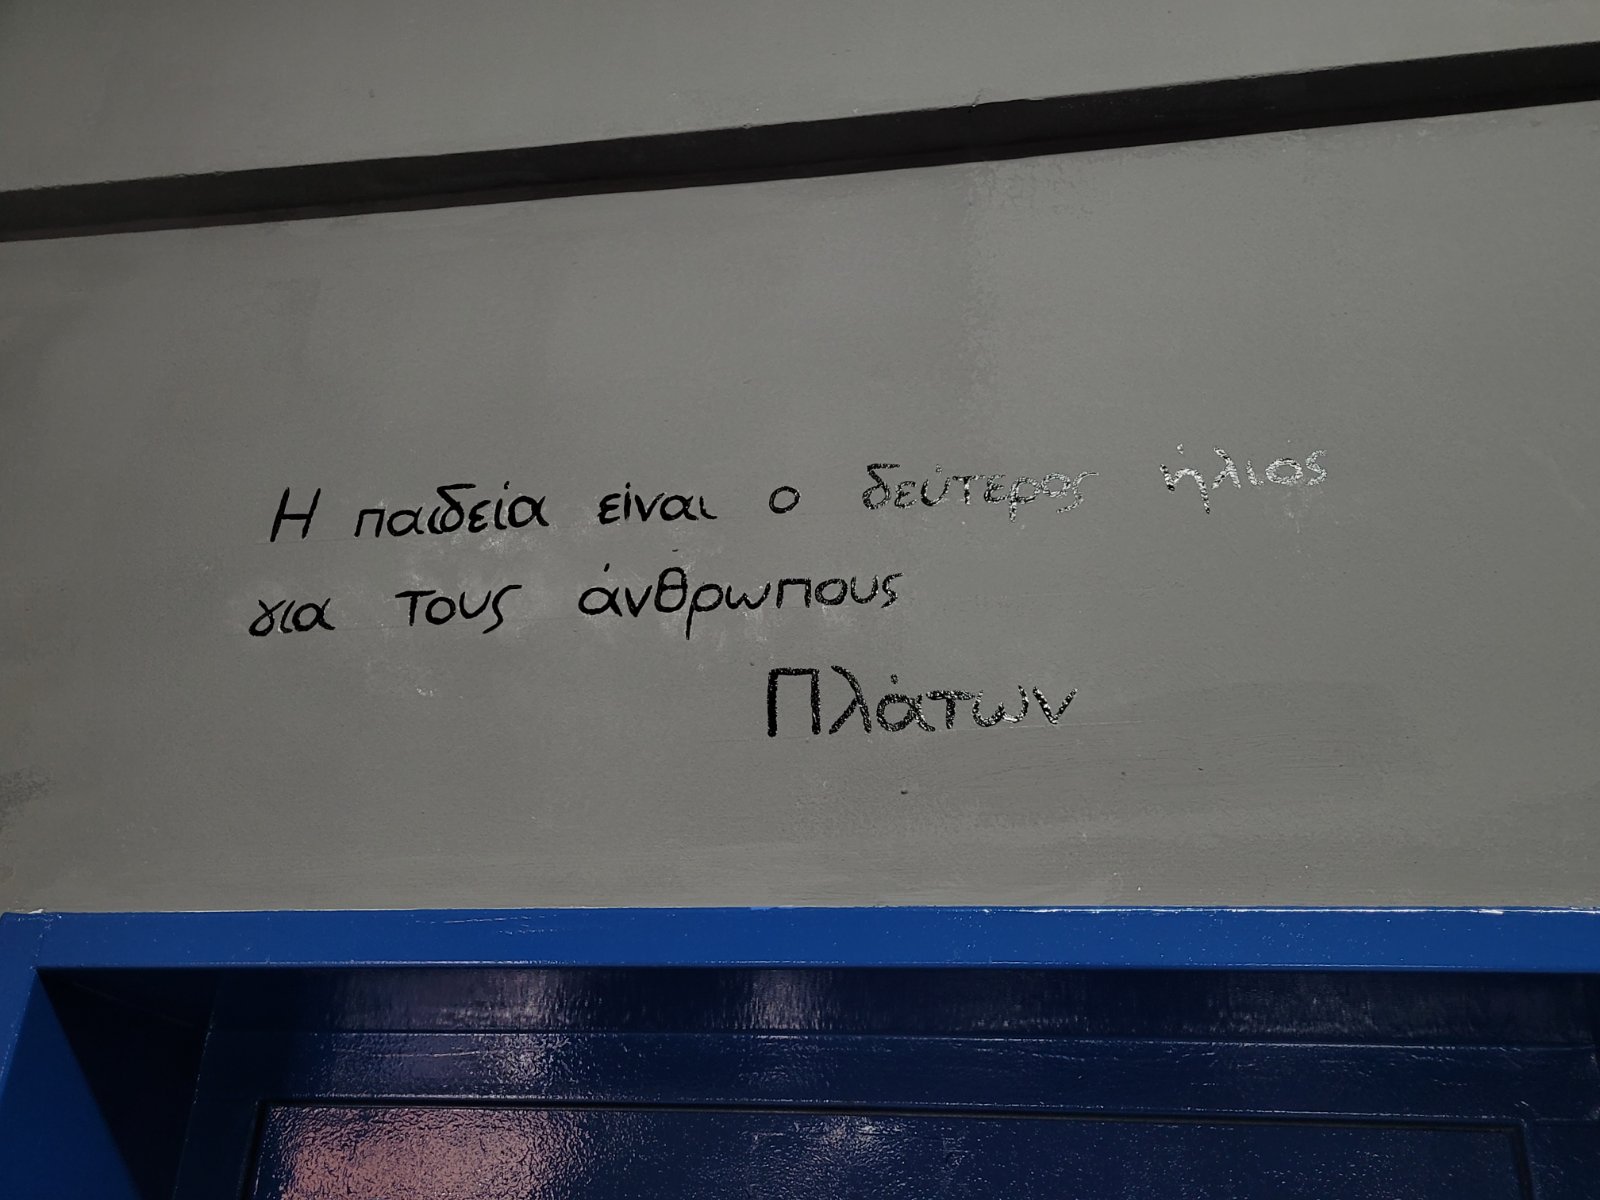 Η παιδεία είναι ο δεύτερος ήλιος
για τους άνθρωπους
Πλάτων